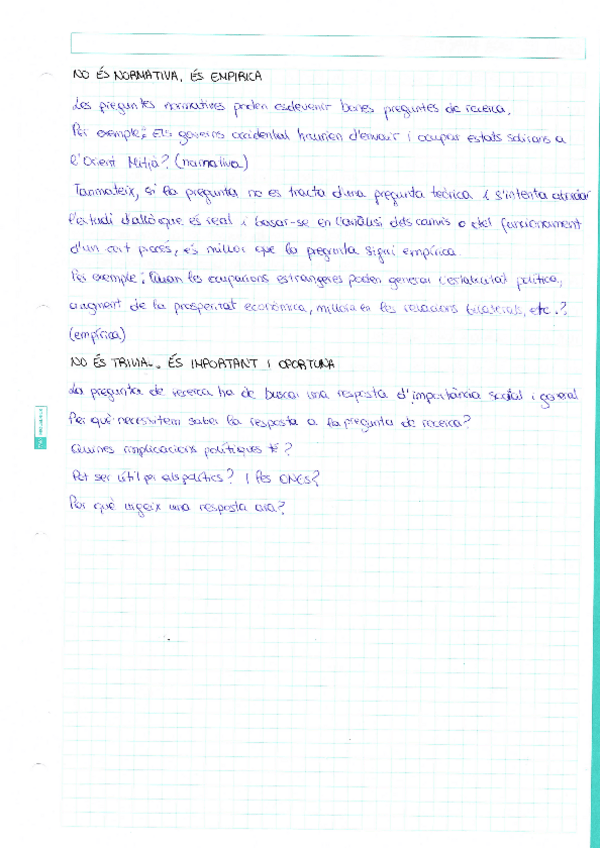 NO ÉS NORMATIVA, ÉS EMPÍRICA
Les preguntes normatives poden esdevenir bones preguntes de recerca.
Per exemple: Els governs occidental haurien d'envair i ocupar estats sobirans a
l'Orient Mitjà? (normativa)
Tanmateix, si la pregunta no es tracta d'una pregunta teòrica i s'intenta
l'estudi d'allò que és real i basar-se en l'anàlisi dels canvis o del funcionament
d'un cert procés, és millor que la pregunta sigui empírica.
Per exemple: Quan les ocupacions estrangeres poden generar l'estabilitat política,
augment de la prosperitat econòmica, millora en les relacions bilaterals, etc.?
(empírica)
NO ÉS TRIVIAL, ÉS IMPORTANT I OPORTUNA
La pregunta de recerca ha de buscar una resposta d'importància social i general
Per què necessitem saber la resposta a la pregunta de recerca?
Quines implicacions polítiques té?
Pot ser útil per als polítics? I les ONGs?
Per què urgeix una resposta ara?